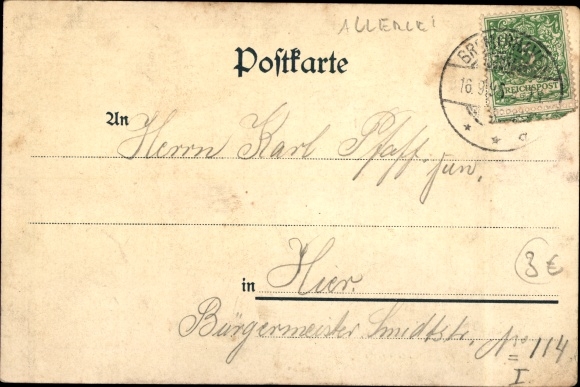 ALLERLEI
Postkarte
REICHSPOST
16.9.
An Herrn Karl Pfaff jun.
in Hier.
3 €
Bürgermeister Smidtstr. No 114
I